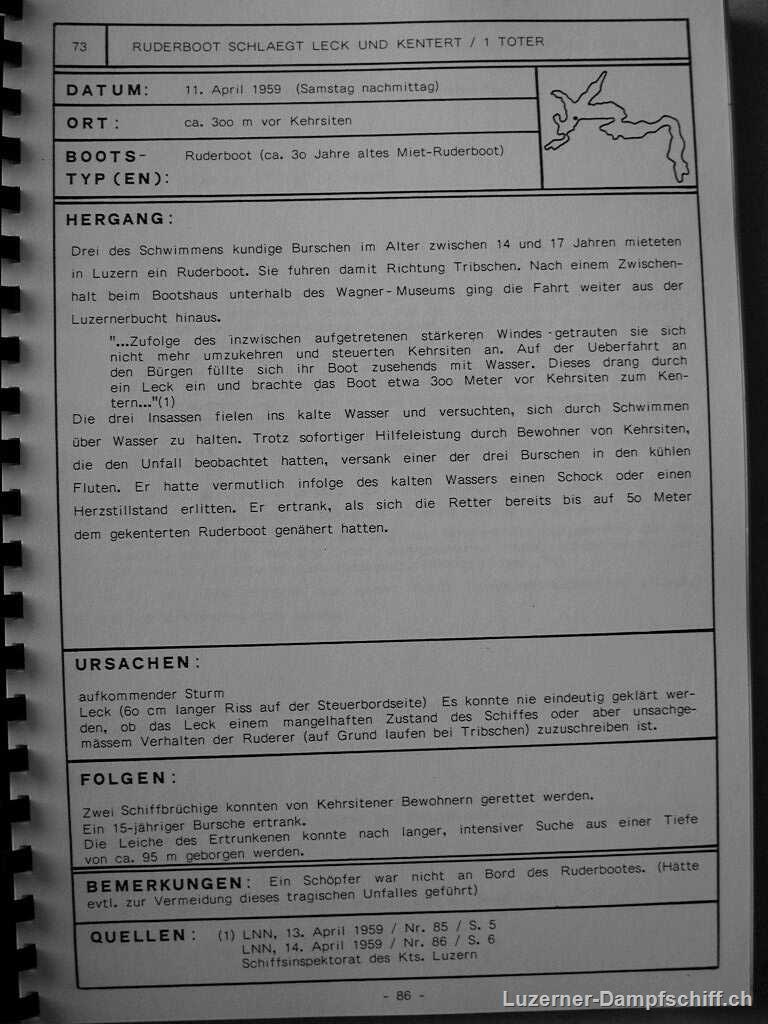 73 RUDERBOOT SCHLAEGT LECK UND KENTERT / 1 TOTER
DATUM: 11. April 1959 (Samstag nachmittag)
ORT: ca. 3oo m vor Kehrsiten
BOOTS- Ruderboot (ca. 3o Jahre altes Miet-Ruderboot)
TYP(EN):
HERGANG:
Drei des Schwimmens kundige Burschen im Alter zwischen 14 und 17 Jahren mieteten
in Luzern ein Ruderboot. Sie fuhren damit Richtung Tribschen. Nach einem Zwischen-
halt beim Bootshaus unterhalb des Wagner-Museums ging die Fahrt weiter aus der
Luzernerbucht hinaus.
"...Zufolge des inzwischen aufgetretenen stärkeren Windes getrauten sie sich
nicht mehr umzukehren und steuerten Kehrsiten an. Auf der Ueberfahrt an
den Bürgen füllte sich ihr Boot zusehends mit Wasser. Dieses drang durch
ein Leck ein und brachte das Boot etwa 3oo Meter vor Kehrsiten zum Ken-
tern..."(1)
Die drei Insassen fielen ins kalte Wasser und versuchten, sich durch Schwimmen
über Wasser zu halten. Trotz sofortiger Hilfeleistung durch Bewohner von Kehrsiten,
die den Unfall beobachtet hatten, versank einer der drei Burschen in den kühlen
Fluten. Er hatte vermutlich infolge des kalten Wassers einen Schock oder einen
Herzstillstand erlitten. Er ertrank, als sich die Retter bereits bis auf 5o Meter
dem gekenterten Ruderboot genähert hatten.
URSACHEN:
aufkommender Sturm
Leck (6o cm langer Riss auf der Steuerbordseite) Es konnte nie eindeutig geklärt wer-
den, ob das Leck einem mangelhaften Zustand des Schiffes oder aber unsachge-
mässem Verhalten der Ruderer (auf Grund laufen bei Tribschen) zuzuschreiben ist.
FOLGEN:
Zwei Schiffbrüchige konnten von Kehrsitener Bewohnern gerettet werden.
Ein 15-jähriger Bursche ertrank.
Die Leiche des Ertrunkenen konnte nach langer, intensiver Suche aus einer Tiefe
von ca. 95 m geborgen werden.
BEMERKUNGEN: Ein Schöpfer war nicht an Bord des Ruderbootes. (Hätte
evtl. zur Vermeidung dieses tragischen Unfalles geführt)
QUELLEN: (1) LNN, 13. April 1959 / Nr. 85 / S. 5
LNN, 14. April 1959 / Nr. 86 / S. 6
Schiffsinspektorat des Kts. Luzern
- 86 -
Luzerner-Dampfschiff.ch